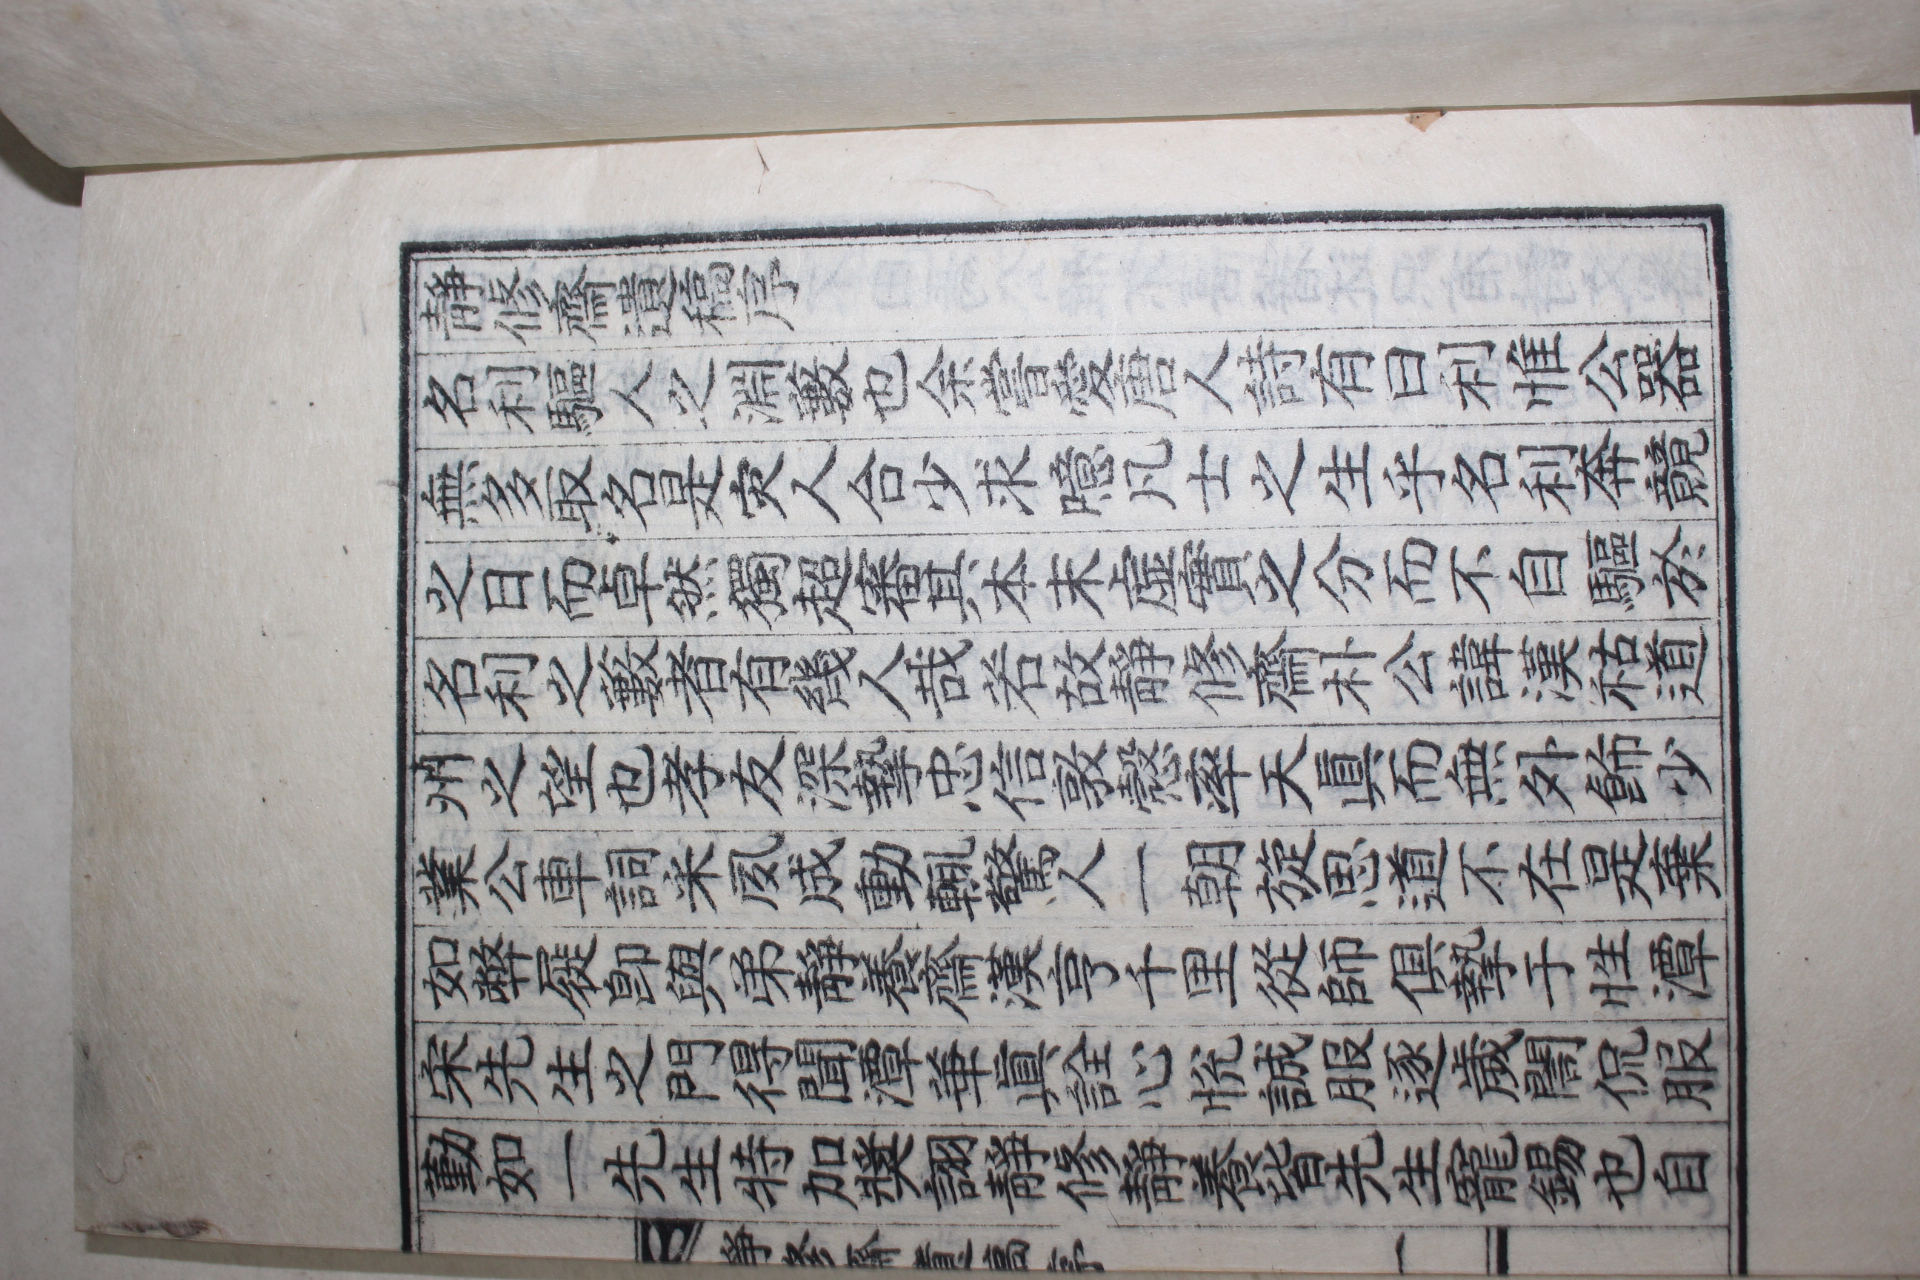 靜修齋遺稿序
名利驅人之淵藪也余嘗愛唐人詩有曰利惟公器
無多取名是灾人合少求噫凡士之生乎名利奔競
之日而卓然獨超審其本末虛實之分而不自驅於
名利之藪者有幾人哉若故靜修齋朴公諱漢祜道
州之望也孝友深摯忠信敦慤率天眞而無外飾少
業公車詞采夙成動輒驚人一朝旋思道不在是棄
如弊屣卽與弟靜養齋漢亨千里從師俱摯于性潭
宋先生之門得聞潭華眞詮心悅誠服逐歲誾侃服
勤如一先生特加奬詡靜修靜養皆先生寵錫也自
靜修齋遺稿序 一